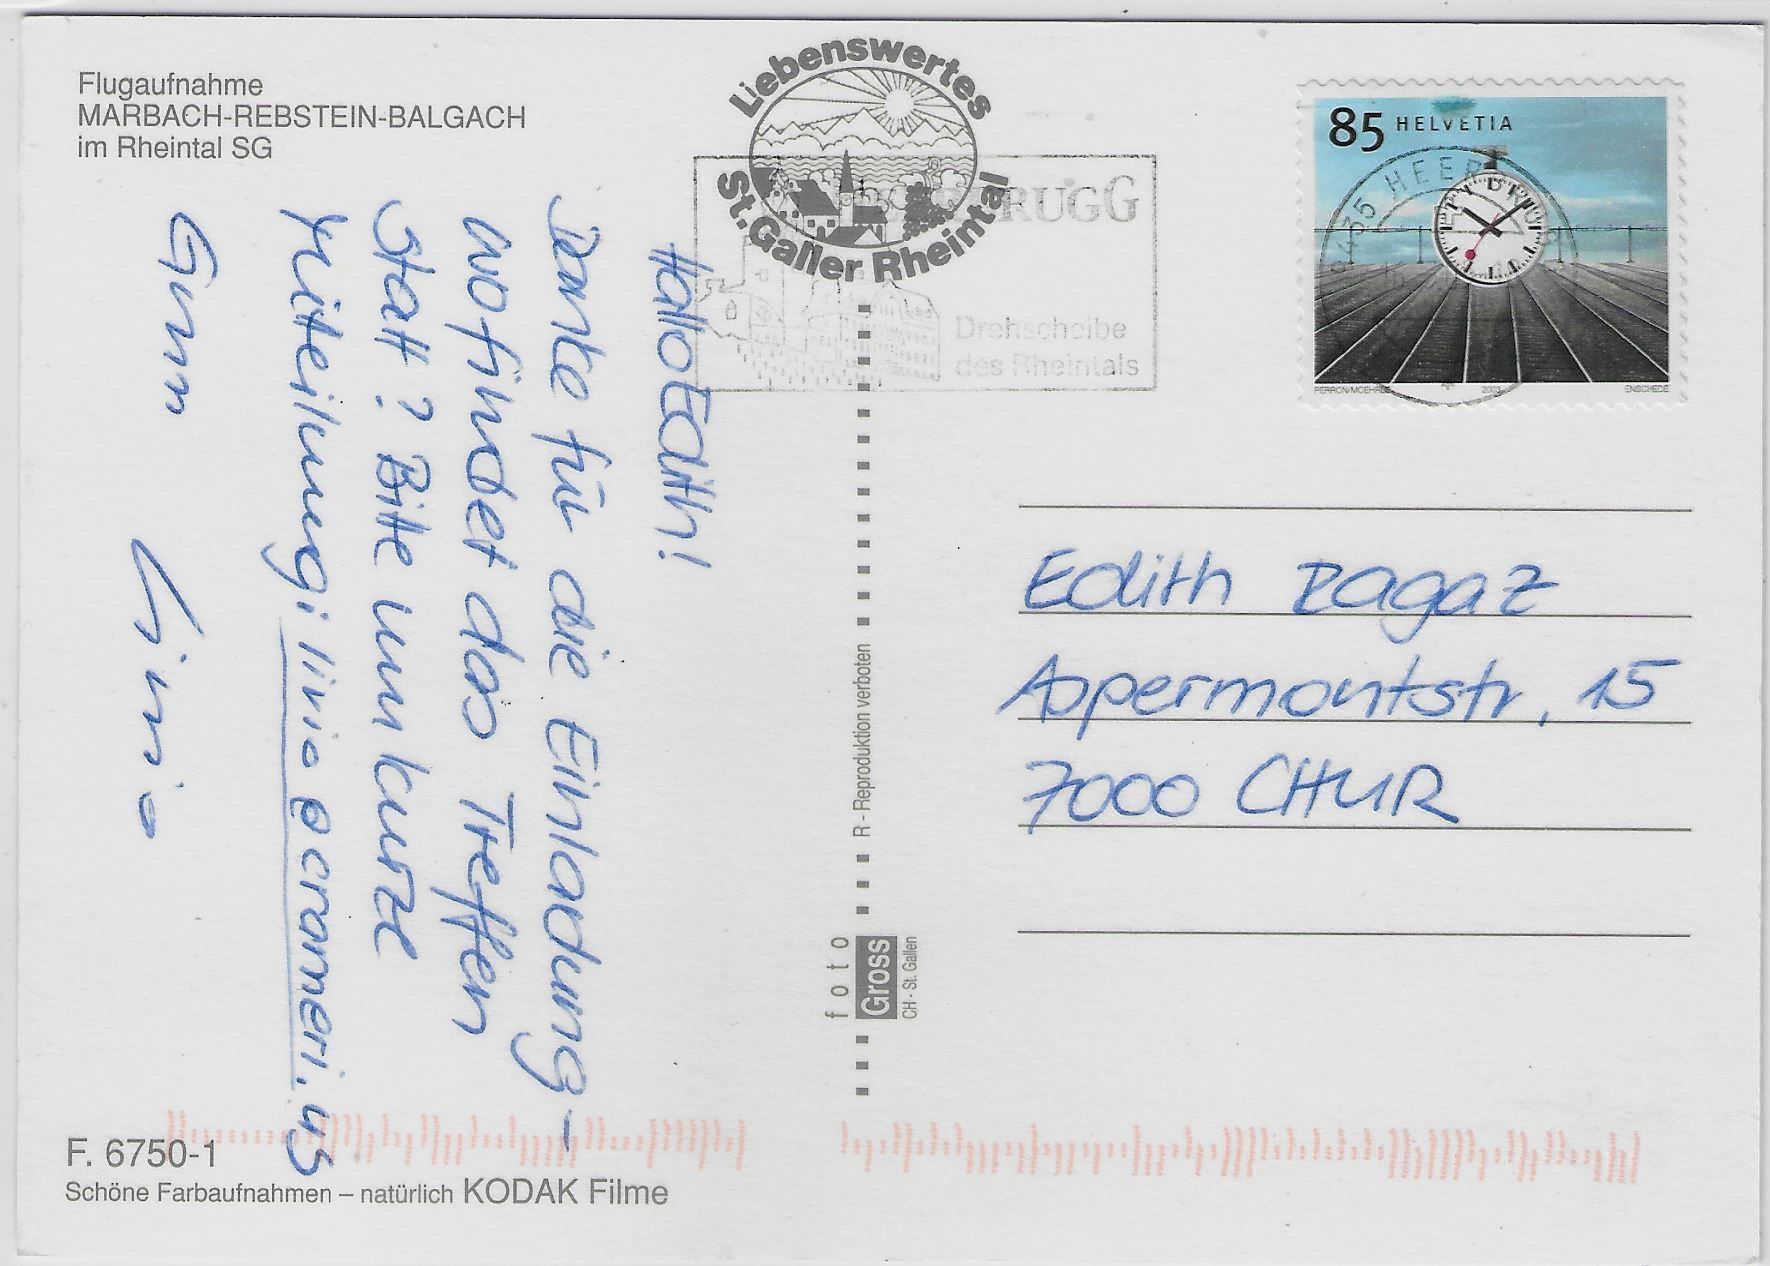 Flugaufnahme
MARBACH-REBSTEIN-BALGACH
im Rheintal SG
Liebenswertes
St.Galler Rheintal
RUGG
Drehscheibe
des Rheintals
85 HELVETIA
9435 HEERBRUGG
PERRON/MOEHRLE 2003 ENSCHEDE
Hallo Edith!
Danke für die Einladung –
wo findet das Treffen
statt? Bitte um kurze
Mitteilung: livio@crameri.us
Gruss
Livio
R - Reproduktion verboten
foto
Gross
CH - St. Gallen
Edith Ragaz
Appermontstr. 15
7000 CHUR
F. 6750-1
Schöne Farbaufnahmen – natürlich KODAK Filme